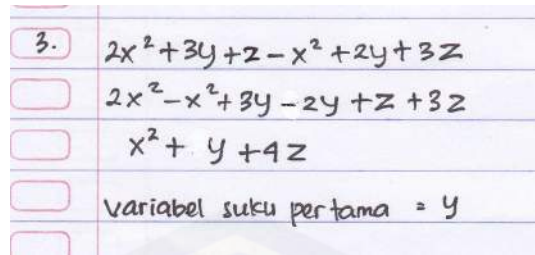 3. 2x²+3y+z-x²+2y+3z
2x²-x²+3y-2y+z+3z
x²+ y +4z
variabel suku pertama = y